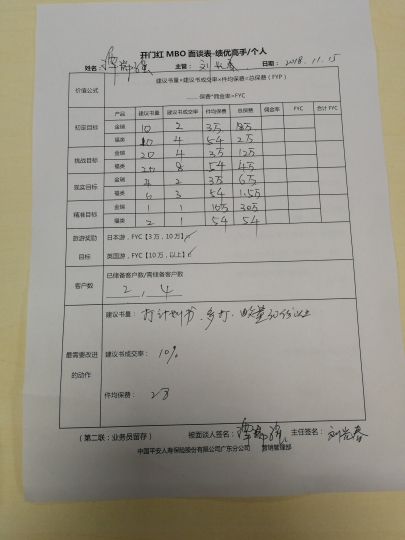 开门红 MBO 面谈表-绩优高手/个人
姓名： 主管： 日期：2018.11.15
价值公式 建议书量×建议书成交率×件均保费=总保费（FYP）
保费*佣金率=FYC
产品 建议书量 建议书成交率 件均保费 总保费 佣金率 FYC 合计 FYC
初定目标 金瑞 10 2 3万
福类 10 4 5千 2万
挑战目标 金瑞 20 4 3万 12万
福类 20 8 5千 4万
金瑞 4 2 3万 6万
福类 3 5千 1.5万
精准目标 金瑞 1 1 30万
福类 2 1 5千 5千
旅游奖励 日本游，FYC【3 万，10 万】✓
目标 英国游，FYC【10 万，以上】✓
客户数 已储备客户数/需储备客户数
2 , 4
建议书量：打计划书、多打、
最需要改进
的动作
建议书成交率：10%
件均保费：
（第二联：业务员留存） 被面谈人签名： 主任签名：
中国平安人寿保险股份有限公司广东分公司 营销管理部